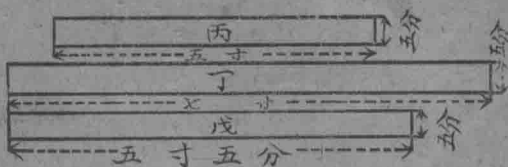 丙
五分
五寸
丁
五分
七寸
戊
五分
五寸五分